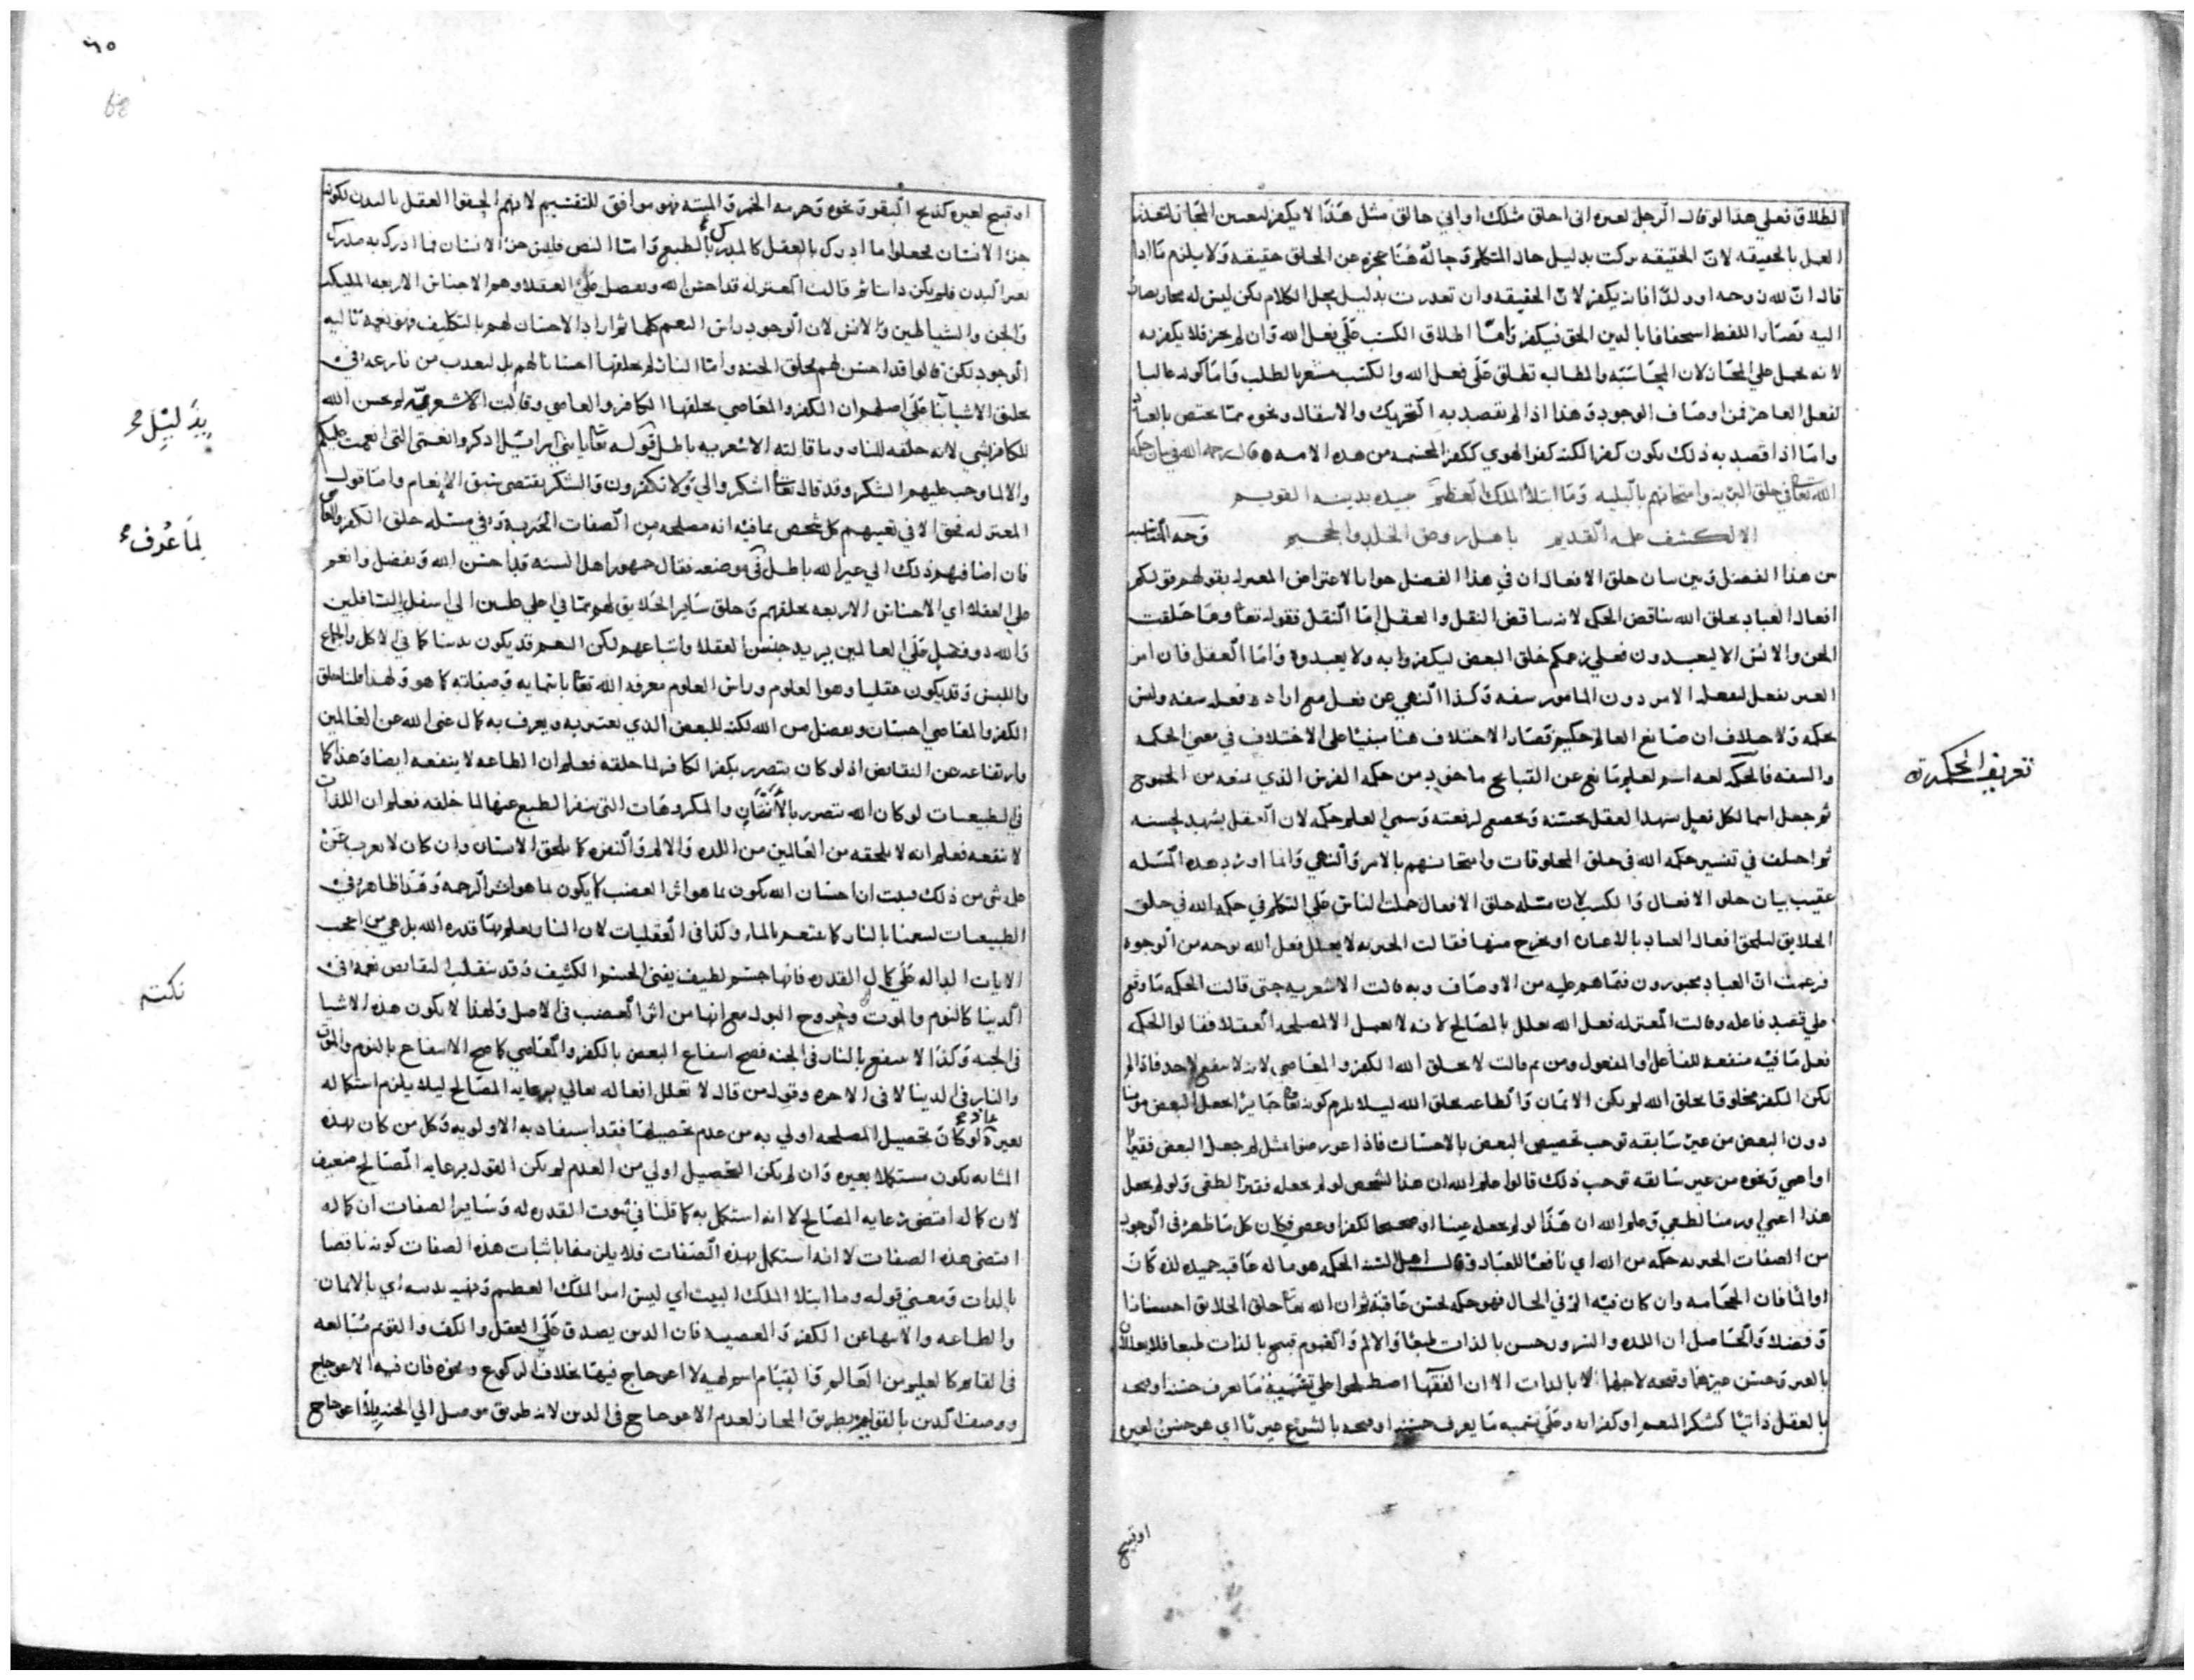 الطلاق فعلي هذا لو قال الرجل لغيره اني اخلق مثلك او اني خالق مثل هذا لا يكفر لتعين المجاز لتعذر
العمل بالحقيقه لان الحقيقه تركت بدليل حال المتكلم وحاله هنا عجزه عن الخلق حقيقه ولا يلزم ما اذا
قال ان لله زوجه او ولدا فانه يكفر لان الحقيقه وان تعذرت بدليل محل الكلام لكن ليس له مجاز يصار
اليه فصار اللفظ استخفافا بالدين الحق فيكفر واما اطلاق الكسب علي فعل الله وان لم يجز فلا يكفر به
لانه يحمل علي المجاز لان المحاسبه والمطالبه تطلق علي فعل الله والكسب مشعر بالطلب واما كونه غالبا
لفعل العاجز فمن اوصاف الوجود وهذا اذا لم يقصد به التحريك والاسفال ونحوه مما يختص بالعباد
واما اذا قصد به ذلك يكون كفرا لكنه كفر الهوي ككفر المجسمه من هذه الامه ٥ قال رحمه الله في بيان حكمة
الله تعالى في خلق البريه وامتحانهم بالبليه وما ابتلا الملك العظيم عبيده بدينه القويم
الا لكشف علمه القديم باهل روض الخلد والجحيم وجه المناسبه
من هذا الفصل وبين بيان خلق الافعال ان في هذا الفصل جوابا لاعتراض المعتزله بقولهم قولكم
افعال العباد بخلق الله يناقض الحكمه لانه يناقض النقل والعقل اما النقل فقوله تعالى وما خلقت
الجن والانس الا ليعبدون فعلي زعمكم خلق البعض ليكفروا به ولا يعبدوه واما العقل فان امر
الغير بفعل لفعله الامر دون المامور سفه وكذا النهي عن فعل مع اراده فعله سفه وليس
بحكمه ولا خلاف ان صانع العالم حكيم فصار الاختلاف هنا مبنيا علي الاختلاف في معني الحكمه
والسفه فالحكمه لغه اسم لعلم مانع عن القبايح ماخوذ من حكمه الفرس الذي تمنعه من الجموح
ثم جعل اسما لكل فعل شهد العقل بحسنه وخصص لرفعته وسمي العلم حكمه لان العقل يشهد لحسنه
ثم اختلف في تفسير حكمه الله في خلق المخلوقات وامتحانهم بالامر والنهي وانما اورد هذه المسله
عقيب بيان خلق الافعال والكسب لان مسله خلق الافعال حملت الناس علي التكلم في حكمه الله في خلق
الخلايق لتلحق افعال العباد بالاعيان او تخرج منها فقالت الجبريه لا يعلل فعل الله بوجه من الوجوه
فزعمت ان العباد مجبورون فيما هم عليه من الاوصاف وبه قالت الاشعريه حتى قالت الحكمه ما وقع
علي قصد فاعله وقالت المعتزله فعل الله معلل بالمصالح لانه لا يعمل الا لمصلحه العقلا فقالوا الحكمه
فعل ما فيه منفعه للفاعل او المفعول ومن ثم قالت لا يخلق الله الكفر والمعاصي لانه لا ينفع لاحد فاذا لم
يكن الكفر مخلوقا بخلق الله لم يكن الايمان والطاعه بخلق الله ليلا يلزم كونه تعالى جايرا اجعل البعض مومنا
دون البعض من غير سابقه توجب تخصيص البعض بالاحسان فاذا عورضوا بمثل لم جعل البعض فقيرا
او اعمي ونحوه من غير سابقه توجب ذلك قالوا علم الله ان هذا الشخص لو لم يجعله فقيرا لطغى ولو لم يجعل
هذا اعمي او زمنا لطغي وعلم الله ان هذا لو لم يجعله غنيا او صحيحا لكفر او عصي فكان كل ما ظهر في الوجود
من الصفات الجبريه حكمه من الله اي نافعا للعباد وقالت اهل السنه الحكمه هو ما له عاقبه حميده لذه كان
او الما فان الحجامه وان كان فيه الم في الحال فهو حكمه لحسن عاقبته ثم ان الله تعالى خلق الخلايق احسانا
وفضلا والحاصل ان اللذه والسرور حسن بالذات طبعا والالم والغموم قبيح بالذات طبعا فلا يعللان
بالغير وحسن غيرهما وقبحه لاجلهما لا بالذات الا ان الفقها اصطلحوا علي تسميه ما يعرف حسنه او قبحه
بالعقل ذاتيا كشكر المنعم او كفرانه وعلي تسميه ما يعرف حسنه او قبحه بالشرع عيرنا اي هو حسن لغيره
او قبيح
تعريف الحكمة
٦٥
او قبيح لغيره كذبح البقر ونحوه وحرمه الخمر والميته فهو موافق للتقسيم لانهم الحقوا العقل بالبدن لكونه
جزء الانسان فجعلوا ما ادرك بالعقل كالمدرك بالطبع واما النص فليس جزء الانسان فما ادرك به مدرك
بغير البدن فلم يكن ذاتيا ثم قالت المعتزله قد احسن الله وتفضل علي العقلا وهو الاجناس الاربعه المليكه
والجن والشياطين والانس لان الوجود راس النعم كلها ثم اراد الاحسان لهم بالتكليف فهو نعمه تاليه
الوجود لكن قالوا قد احسن لهم بخلق الجنه واما النار لم يخلقها احسانا لهم بل ليعذب من نازعه في
خلق الاشيا بنا علي اصلهم ان الكفر والمعاصي بخلقها الكافر والعاصي وقالت الاشعريه لم يحسن الله
للكافر بشي لانه خلقه للنار وما قالته الاشعريه باطل قوله تعالى يا بني اسرائيل اذكروا نعمتي التي انعمت عليكم
والا لما وجب عليهم الشكر وقد قال تعالى اشكروا لي ولا تكفرون والشكر يقتضي سبق الانعام واما قول
المعتزله فحق الا في تعيينهم كل شخص بما فيه انه مصلحه من الصفات الجبريه وفي مسله خلق الكفر والمعاصي
فان اضافتهم ذلك الي غير الله باطل في موضعه فقال جمهور اهل السنه قد احسن الله وتفضل وانعم
علي العقلا اي الاجناس الاربعه بخلقهم وخلق ساير الخلايق لهم مما في اعلي عليين الي اسفل السافلين
والله ذو فضل علي العالمين يريد جنس العقلا واتباعهم لكن النعم قد يكون بدنيا كما في الاكل والجماع
واللبس وقد يكون عقليا وهو العلوم وراس العلوم معرفه الله تعالى باسمايه وصفاته كما هو ولهذا قلنا خلق
الكفر والمعاصي احسان وتفضل من الله لكنه للبعض الذي يعتبر به ويعرف به كمال غني الله عن العالمين
وارتفاعه عن النقايص اذ لو كان يتضرر بكفر الكافر لما خلقه فعلم ان الطاعه لا ينفعه ايضا وهذا كما
في الطبيعيات لو كان الله يتضرر بالانتان والمكروهات التي ينفر الطبع عنها لما خلقه فعلم ان اللذات
لا تنفعه فعلم انه لا يلحقه من العالمين من اللذه والالم والنفره كما يلحق الانسان وان كان لا يعزب عن
علمه شي من ذلك فثبت ان احسان الله يكون بما هو اثر الغضب كما يكون بما هو اثر الرحمه وهذا ظاهر في
الطبيعيات لتنعمنا بالنار كما نتنعم بالماء وكذا في العقليات لان النار يعلم بها قدره الله بل هي من اعجب
الايات الداله علي كمال القدره فانها جسم لطيف يفني الجسم الكثيف وقد ينقلب النقايص نعمه في
الدنيا كالنوم والموت وخروج البول مع انها من اثر الغضب في الاصل ولهذا لا يكون هذه الاشيا
في الجنه وكذا لا ينتفع بالنار في الجنه فصح انتفاع البعض بالكفر والمعاصي كما صح الانتفاع بالنوم والموت
والنار في الدنيا لا في الاخره وقول من قال لا تعلل افعاله تعالي برعايه المصالح ليلا يلزم استكماله
بغيره لو كان تحصيل المصلحه اولي به من عدم تحصيلها فقد استفاد به الاولويه وكل من كان بهذه
المثابه يكون مستكملا بغيره وان لم يكن التحصيل اولي من العدم لم يكن القول برعايه المصالح ضعيف
لان كماله اقتضي رعايه المصالح لا انه استكمل به كما قلنا في ثبوت القدره له وساير الصفات ان كماله
اقتضي هذه الصفات لا انه استكمل بهذه الصفات فلا يلزمنا باثبات هذه الصفات كونه ناقصا
بالذات ومعني قوله وما ابتلا الملك البيت اي ليس امر الملك العظيم ونهيه بدينه اي بالايمان
والطاعه والانتها عن الكفر والمعصيه فان الدين يصدق علي العقل والكف والقويم مبالغه
في القايم كالعليم من العالم والقيام اسم لهيه لا اعوجاج فيها بخلاف الركوع ونحوه فان فيه الاعوجاج
ووصف الدين بالقوايم بطريق المجاز لعدم الاعوجاج في الدين لانه طريق موصل الي الجنه بلا اعوجاج
بدليل
لما عرف
نكته